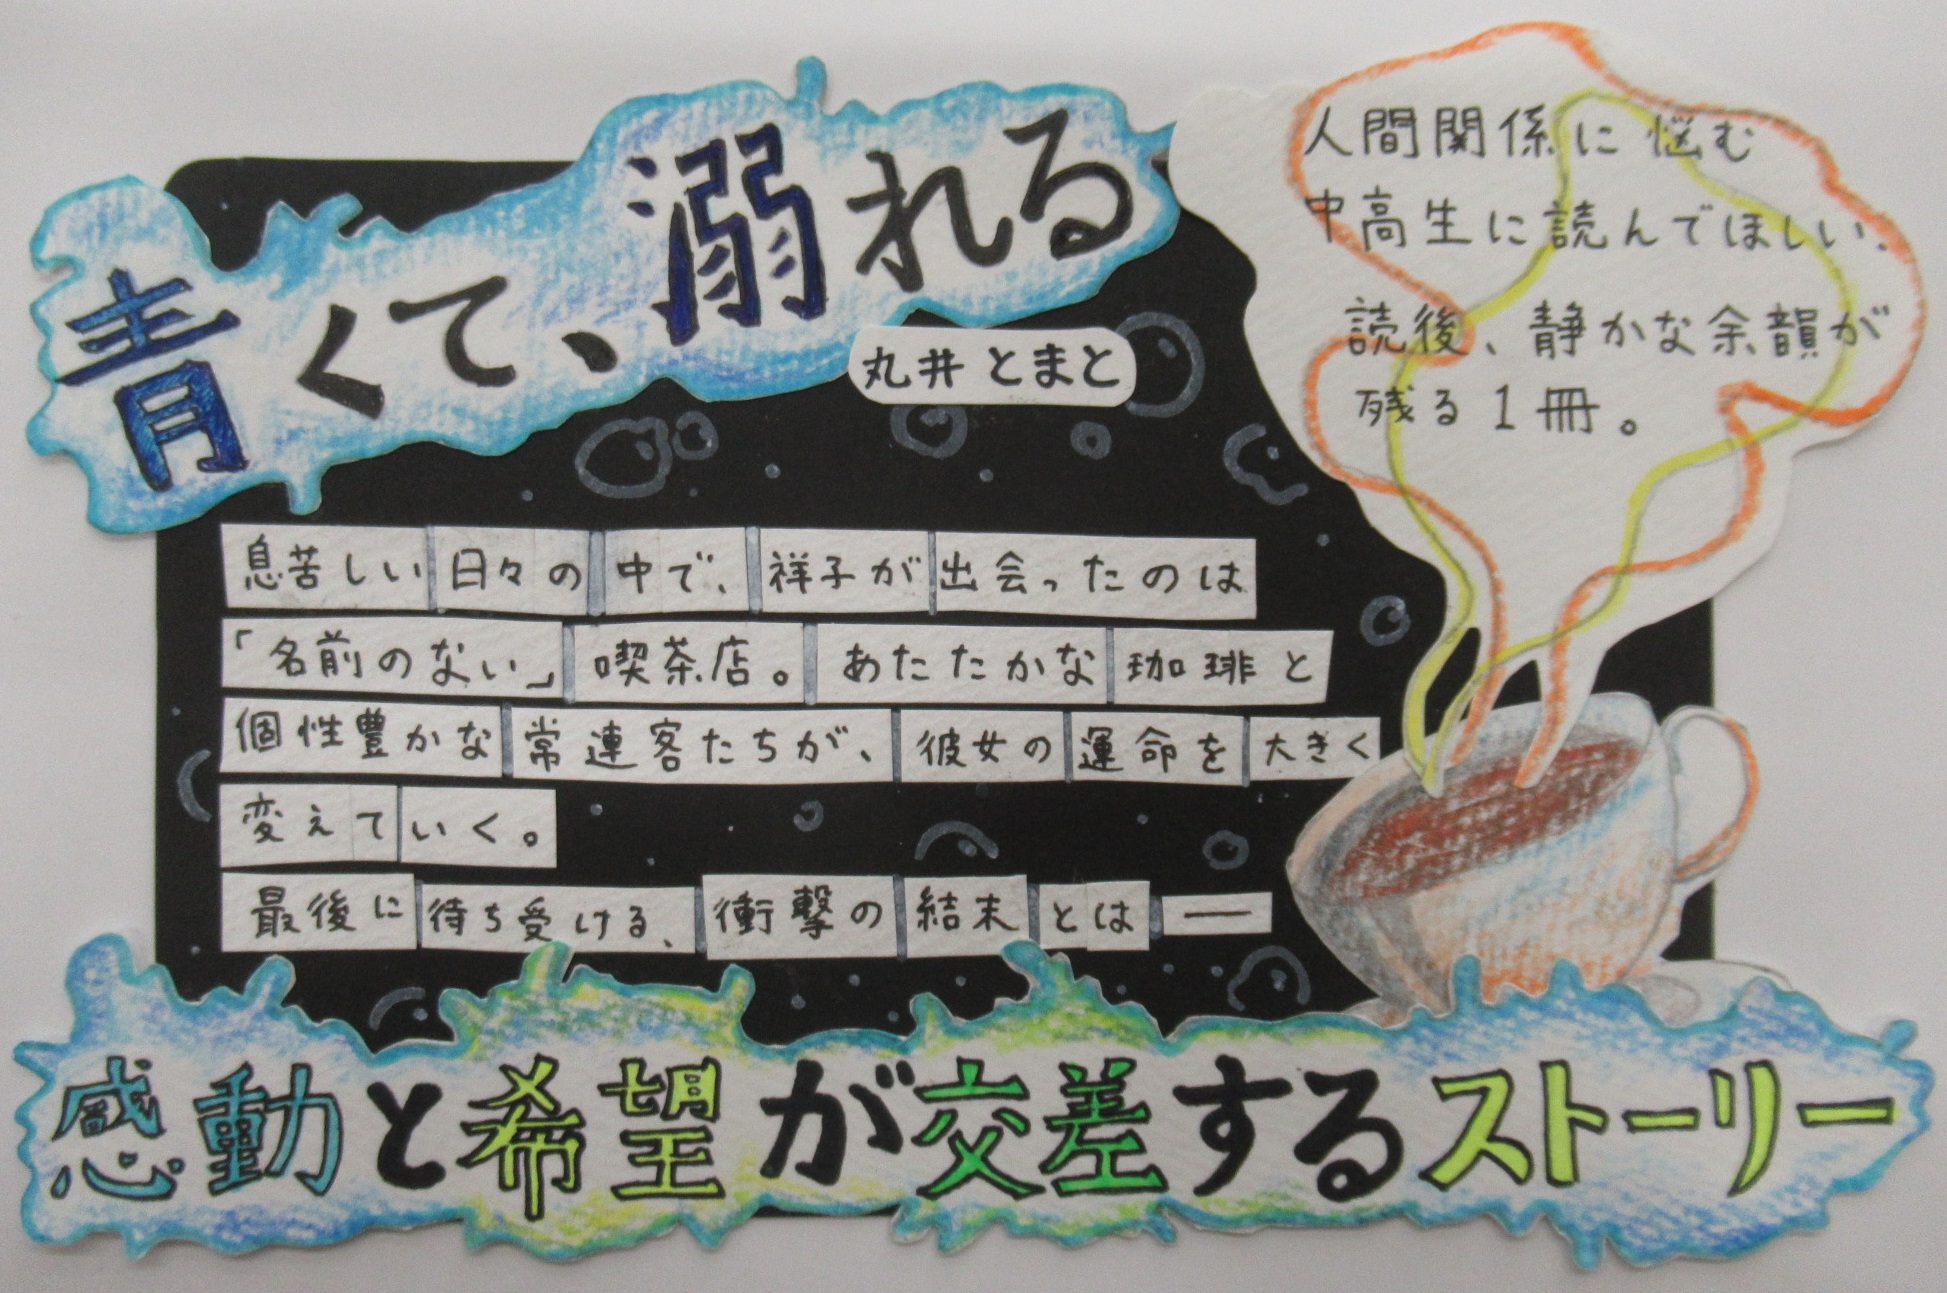 青くて、溺れる
丸井とまと
人間関係に悩む
中高生に読んでほしい、
読後、静かな余韻が
残る1冊。
息苦しい日々の中で、祥子が出会ったのは
「名前のない」喫茶店。あたたかな珈琲と
個性豊かな常連客たちが、彼女の運命を大きく
変えていく。
最後に待ち受ける、衝撃の結末とは―
感動と希望が交差するストーリー